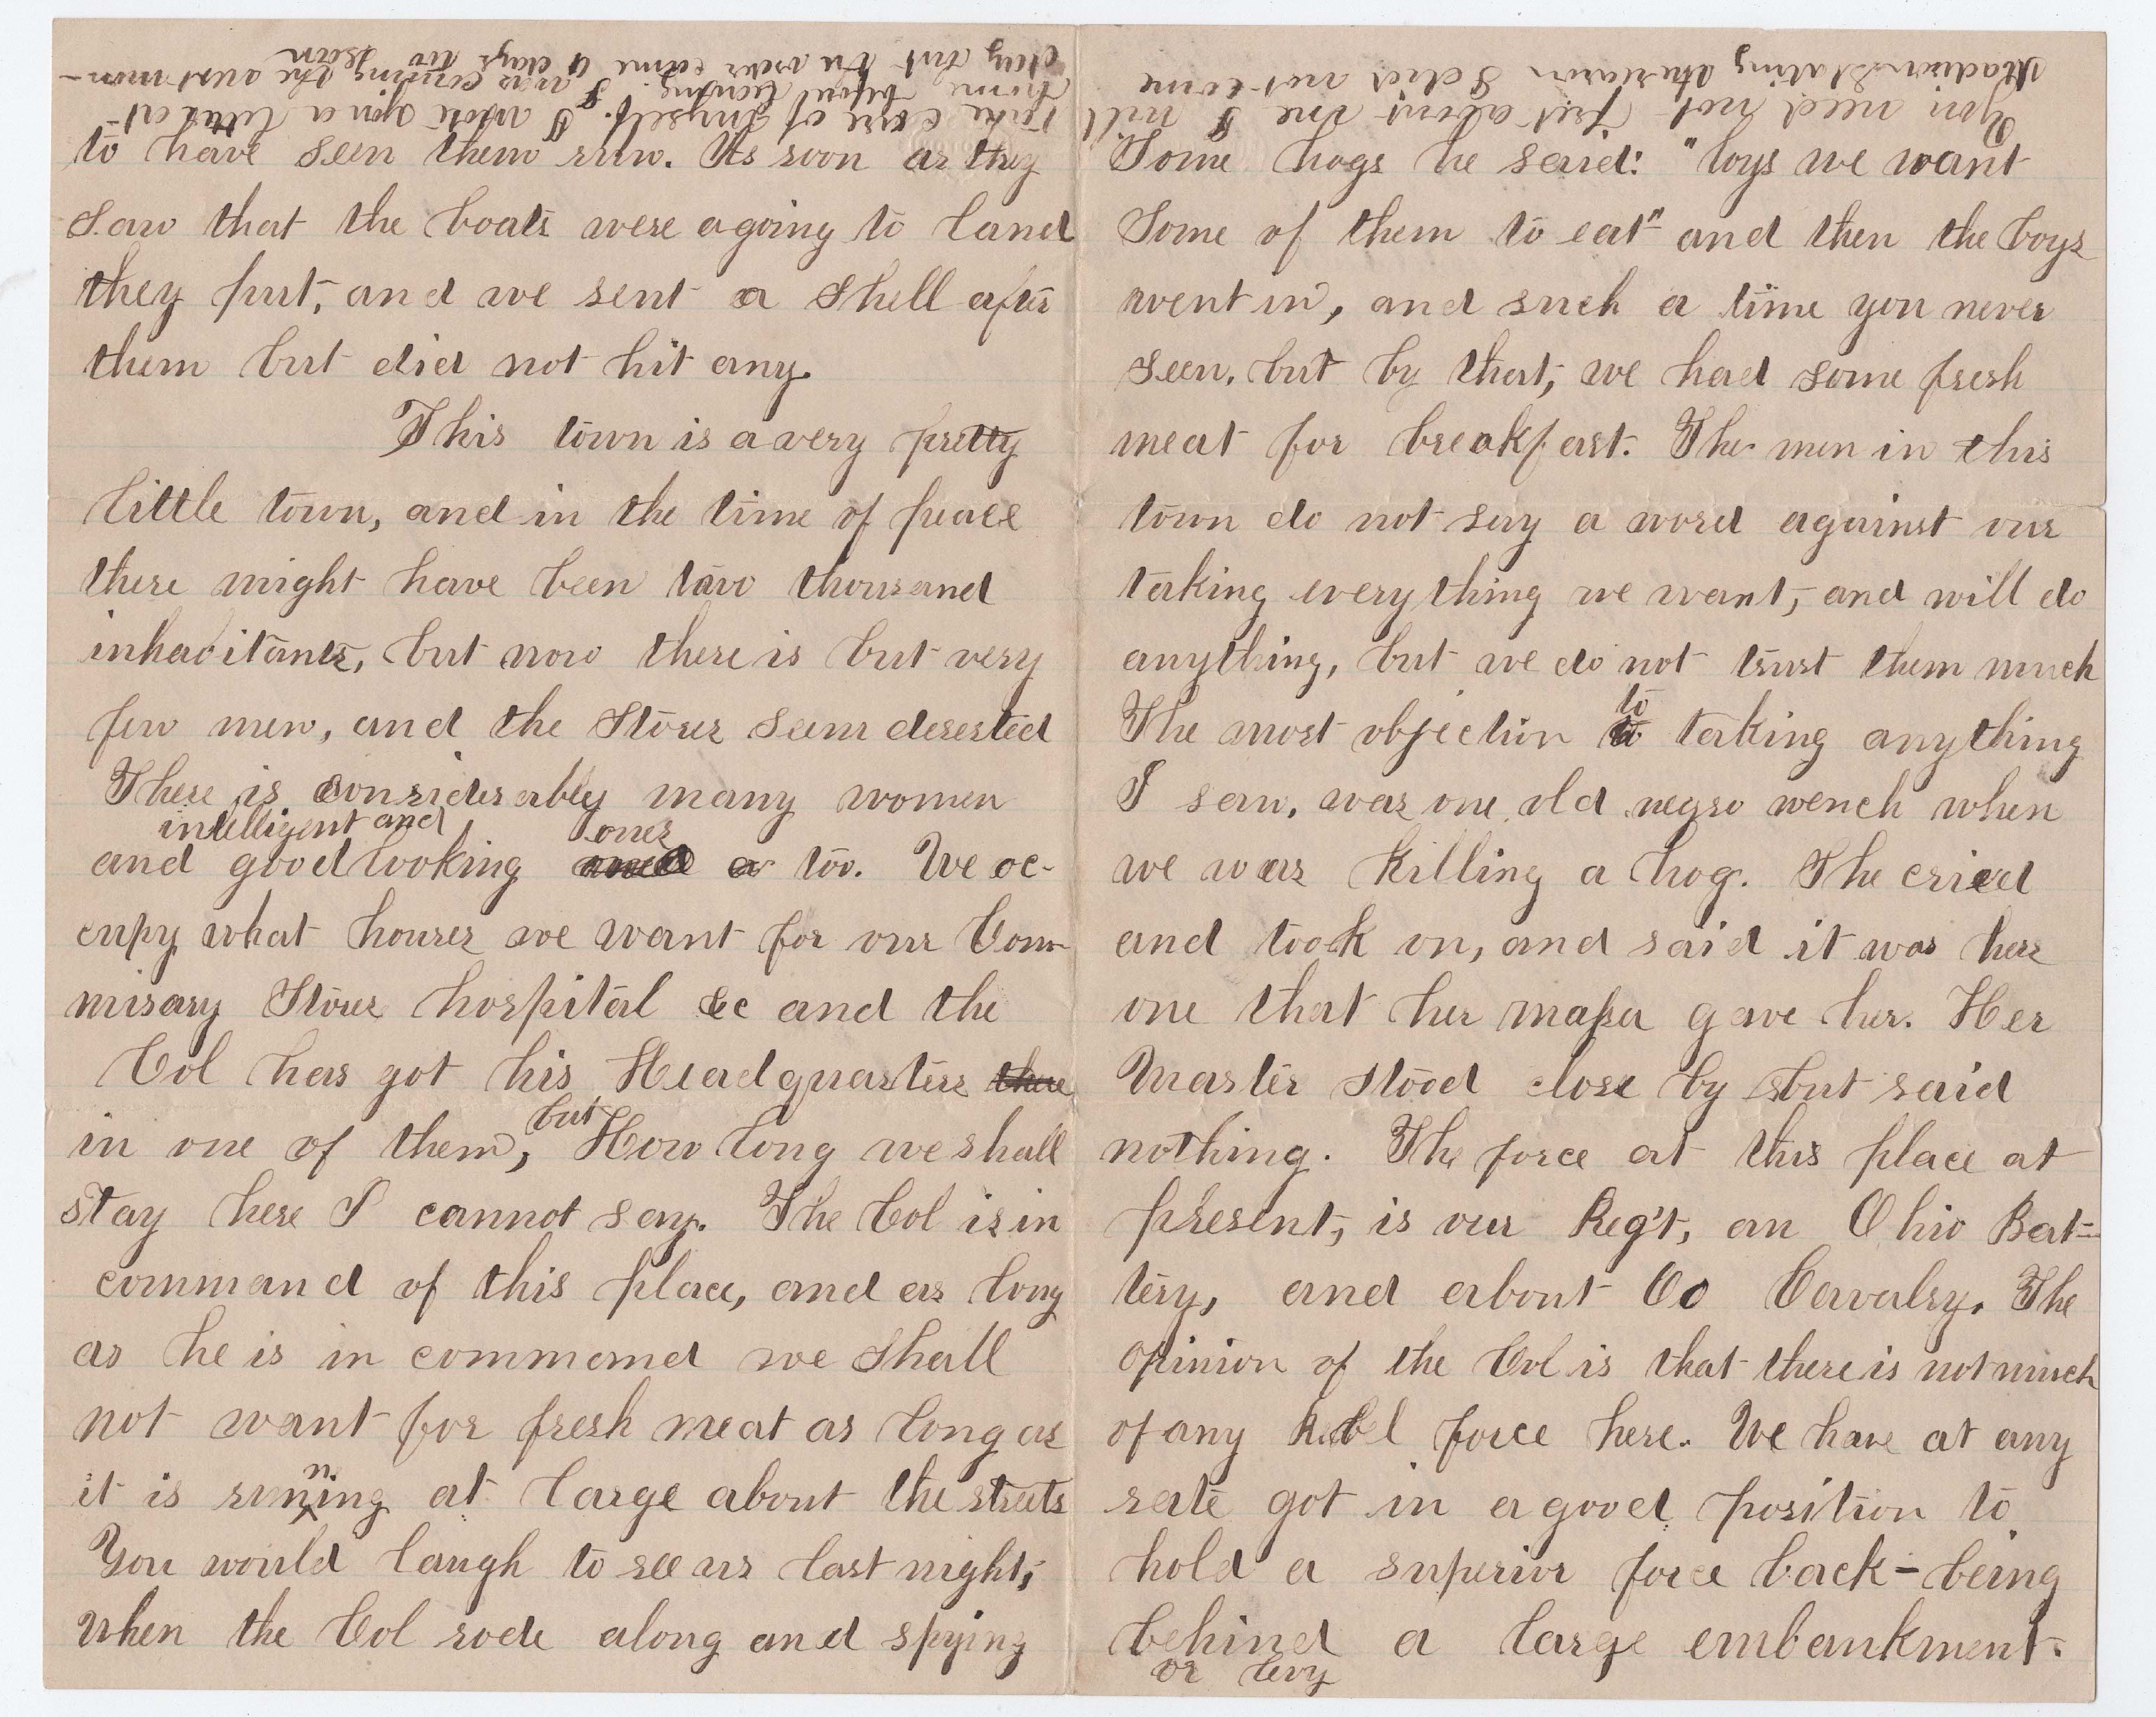 to have seen them run. As soon as they
saw that the boats were agoing to land
they put, and we sent a shell after
them but did not hit any.
This town is a very pretty
little town, and in the time of peace
there might have been two thousand
inhabitants, but now there is but very
few men, and the stores seem deserted
There is considerably many women
intelligent and ones
and good looking too. We oc-
cupy what houses we want for our Com-
misary Stores hospital &c and the
Col has got his Headquarters there
in one of them, but How long we shall
stay here I cannot say. The Col is in
command of this place, and as long
as he is in command we shall
not want for fresh meat as long as
it is running at large about the streets
You would laugh to see us last night,
when the Col rode along and spying
Some hogs he said: "boys we want
some of them to eat" and then the boys
went in, and such a time you never
seen, but by that, we had some fresh
meat for breakfast. The men in this
town do not say a word against our
taking everything we want, and will do
anything, but we do not trust them much
to
The most objection to taking anything
I saw, was one old negro wench when
we was killing a hog. She cried
and took on, and said it was hers
one that her massa gave her. Her
Master stood close by but said
nothing. The force at this place at
present, is our Reg't, an Ohio Bat-
tery, and about Co Cavalry. The
opinion of the Col is that there is not much
of any Rebel force here. We have at any
rate got in a good position to
hold a superior force back - being
behind a large embankment.
or levy
You need not fret about me I will
take care of myself. I wrote you a letter at
home before leaving. I was expecting the next mon-
day but the order came 2 days too soon
Madison Stating the reason I did not come